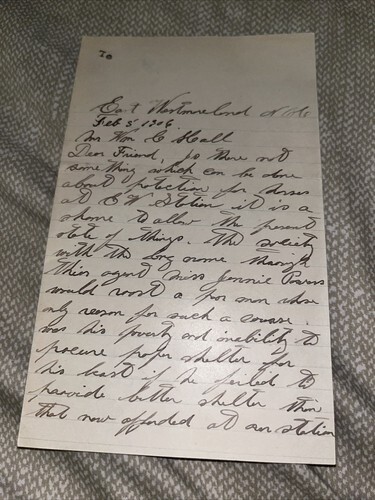 To
East Westmoreland N H
Feb 5 1906
Mr Wm C Hall
Dear Friend, is there not
something which can be done
about protection for horses
at E W Station it is a
shame to allow the present
state of things. The society
with the long name through
their agent Miss Jennie Powers
would roast a poor man whose
only reason for such a course
was his poverty and inability to
procure proper shelter for
his beast if he failed to
provide better shelter than
that now afforded at our station